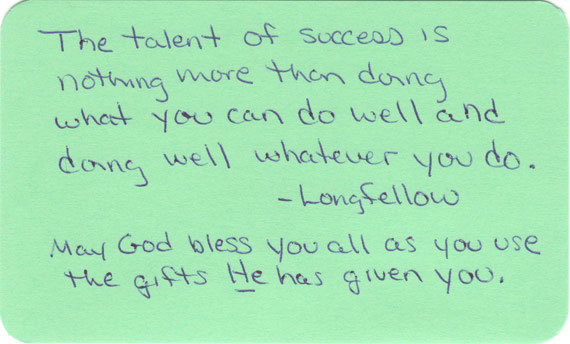 The talent of success is
nothing more than doing
what you can do well and
doing well whatever you do.
-Longfellow
May God bless you all as you use
the gifts He has given you.